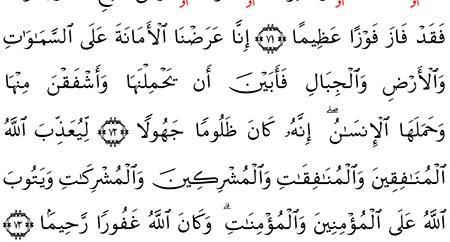 فَقَدْ فَازَ فَوْزًا عَظِيمًا ﴿٧١﴾ إِنَّا عَرَضْنَا ٱلْأَمَانَةَ عَلَى ٱلسَّمَـٰوَٰتِ
وَٱلْأَرْضِ وَٱلْجِبَالِ فَأَبَيْنَ أَن يَحْمِلْنَهَا وَأَشْفَقْنَ مِنْهَا
وَحَمَلَهَا ٱلْإِنسَـٰنُ ۖ إِنَّهُۥ كَانَ ظَلُومًا جَهُولًا ﴿٧٢﴾ لِّيُعَذِّبَ ٱللَّهُ
ٱلْمُنَـٰفِقِينَ وَٱلْمُنَـٰفِقَـٰتِ وَٱلْمُشْرِكِينَ وَٱلْمُشْرِكَـٰتِ وَيَتُوبَ
ٱللَّهُ عَلَى ٱلْمُؤْمِنِينَ وَٱلْمُؤْمِنَـٰتِ ۗ وَكَانَ ٱللَّهُ غَفُورًا رَّحِيمًۢا ﴿٧٣﴾